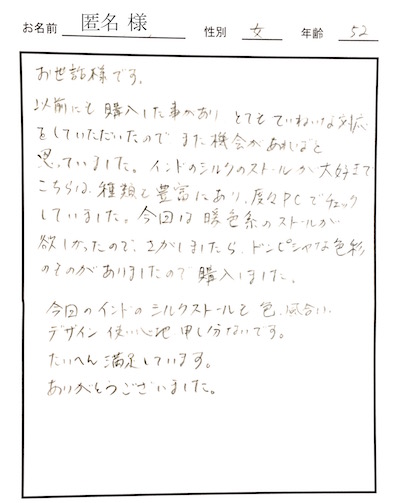 お名前 匿名 様 性別 女 年齢 52
お世話様です。
以前にも購入した事があり とてもていねいな対応
をしていただいたので また機会があればと
思っていました。インドのシルクのストールが大好きで
こちらは、種類も豊富にあり、度々PCでチェック
していました。今回は暖色系のストールが
欲しかったので、さがしましたら、ドンピシャな色彩
のものがありましたので購入しました。
今回のインドのシルクストールも 色、風合い、
デザイン 使い心地 申し分ないです。
たいへん満足しています。
ありがとうございました。